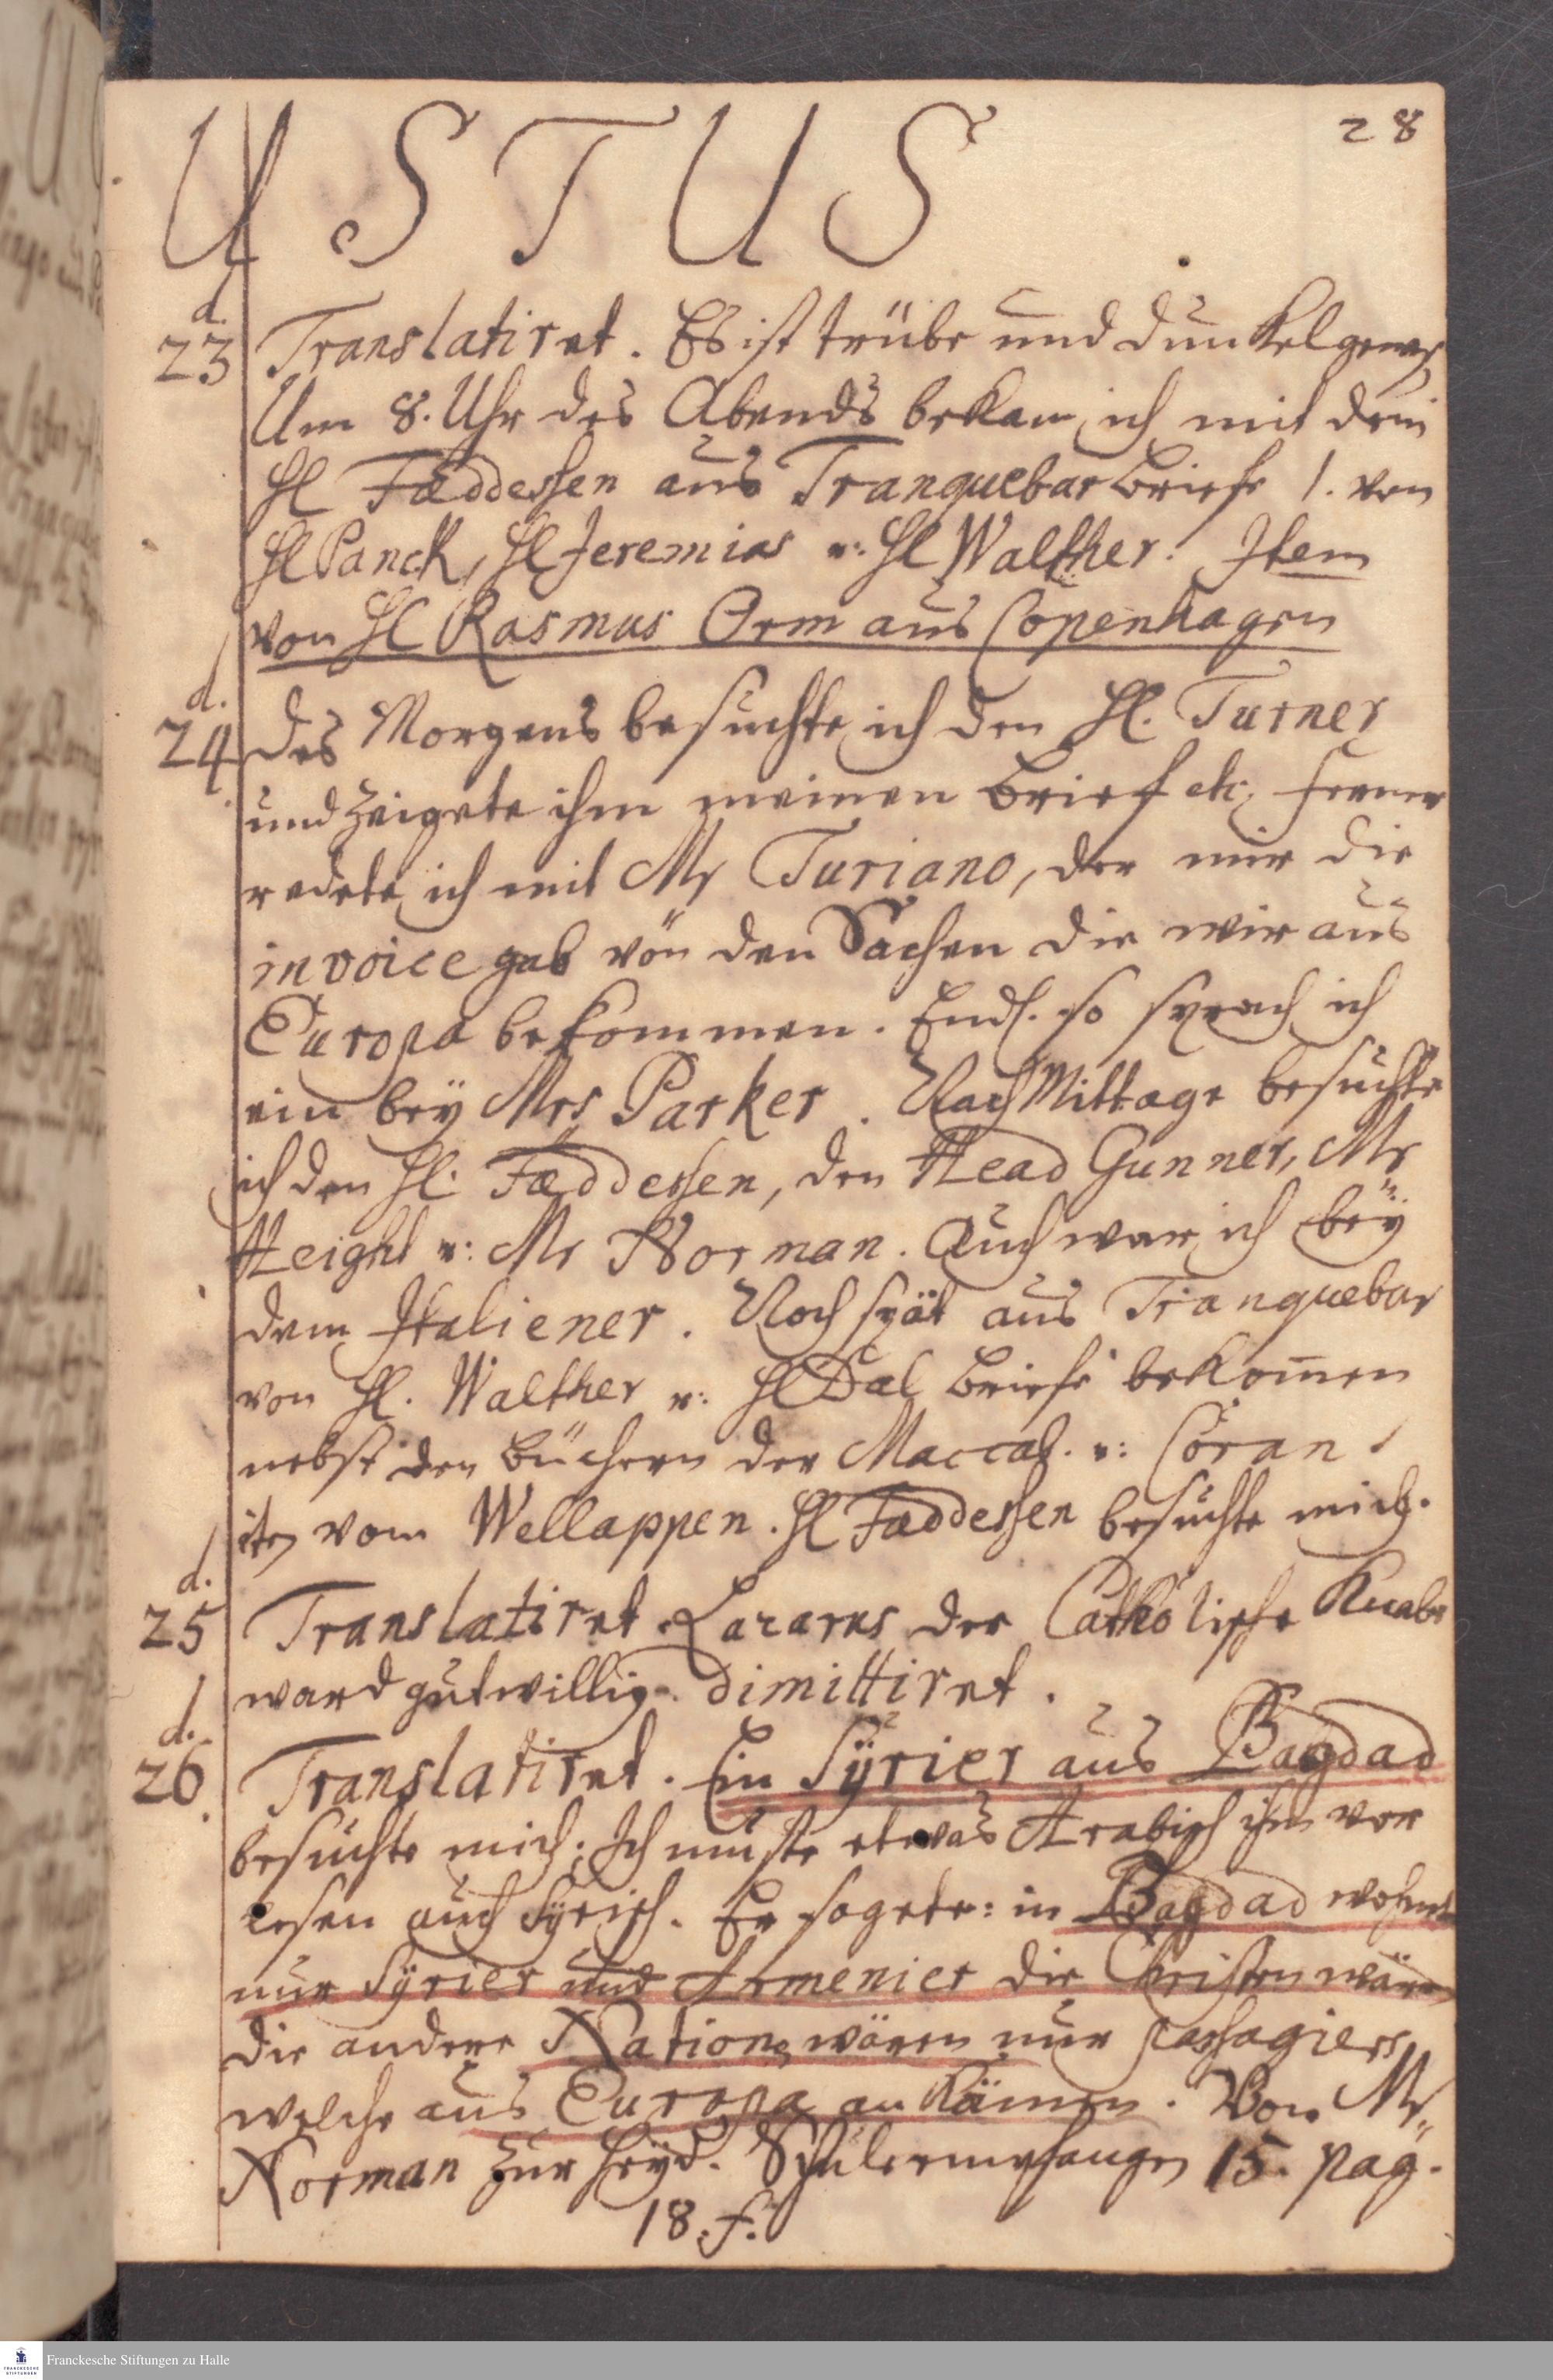 28
USTUS
d. 23 Translatiret. Es ist trübe und dunkel gewes
Um 8. Uhr des Abends bekam ich mit dem
H Fæddessen aus Tranquebar briefe 1. von
H Panck, H Jeremias u: H Walther. Item
von H Rasmus Orm aus Copenhagen
d. 24 des Morgens besuchte ich den H. Turner
und zeigete ihm meinen brief etc; ferner
redete ich mit Mr Turiano, der mir die
invoice gab von den Sachen die wir aus
Europa bekommen. Endl. so sprach ich
ein bey Mrs Parker. Nach Mittage besuchte
ich den H. Fæddessen, den Head Gunner, Mr
Height u: Mr Norman. Auch war ich bey
dem Italiener. Noch spät aus Tranquebar
von H. Walther u: H Dal briefe bekomen
nebst den büchern der Maccab. u: Coran
it vom Wellappen. H Fæddessen besuchte mich.
d. 25 Translatiret. Lazarus der Catholische Knabe
ward gutwillig dimittiret.
d. 26 Translatiret. Ein Syrier aus Bagdad
besuchte mich; Ich muste etwas Arabisch ihm vor
lesen auch Syrisch. Er sagete: in Bagdad wohnt
nur Syrier und Armenier die Christen wären
die andere Nation wären nur passagiers
welche aus Europa an kämen. Von Mr
Norman zur heyd. Schule empfangen 15. pag.
18. f.
Franckesche Stiftungen zu Halle